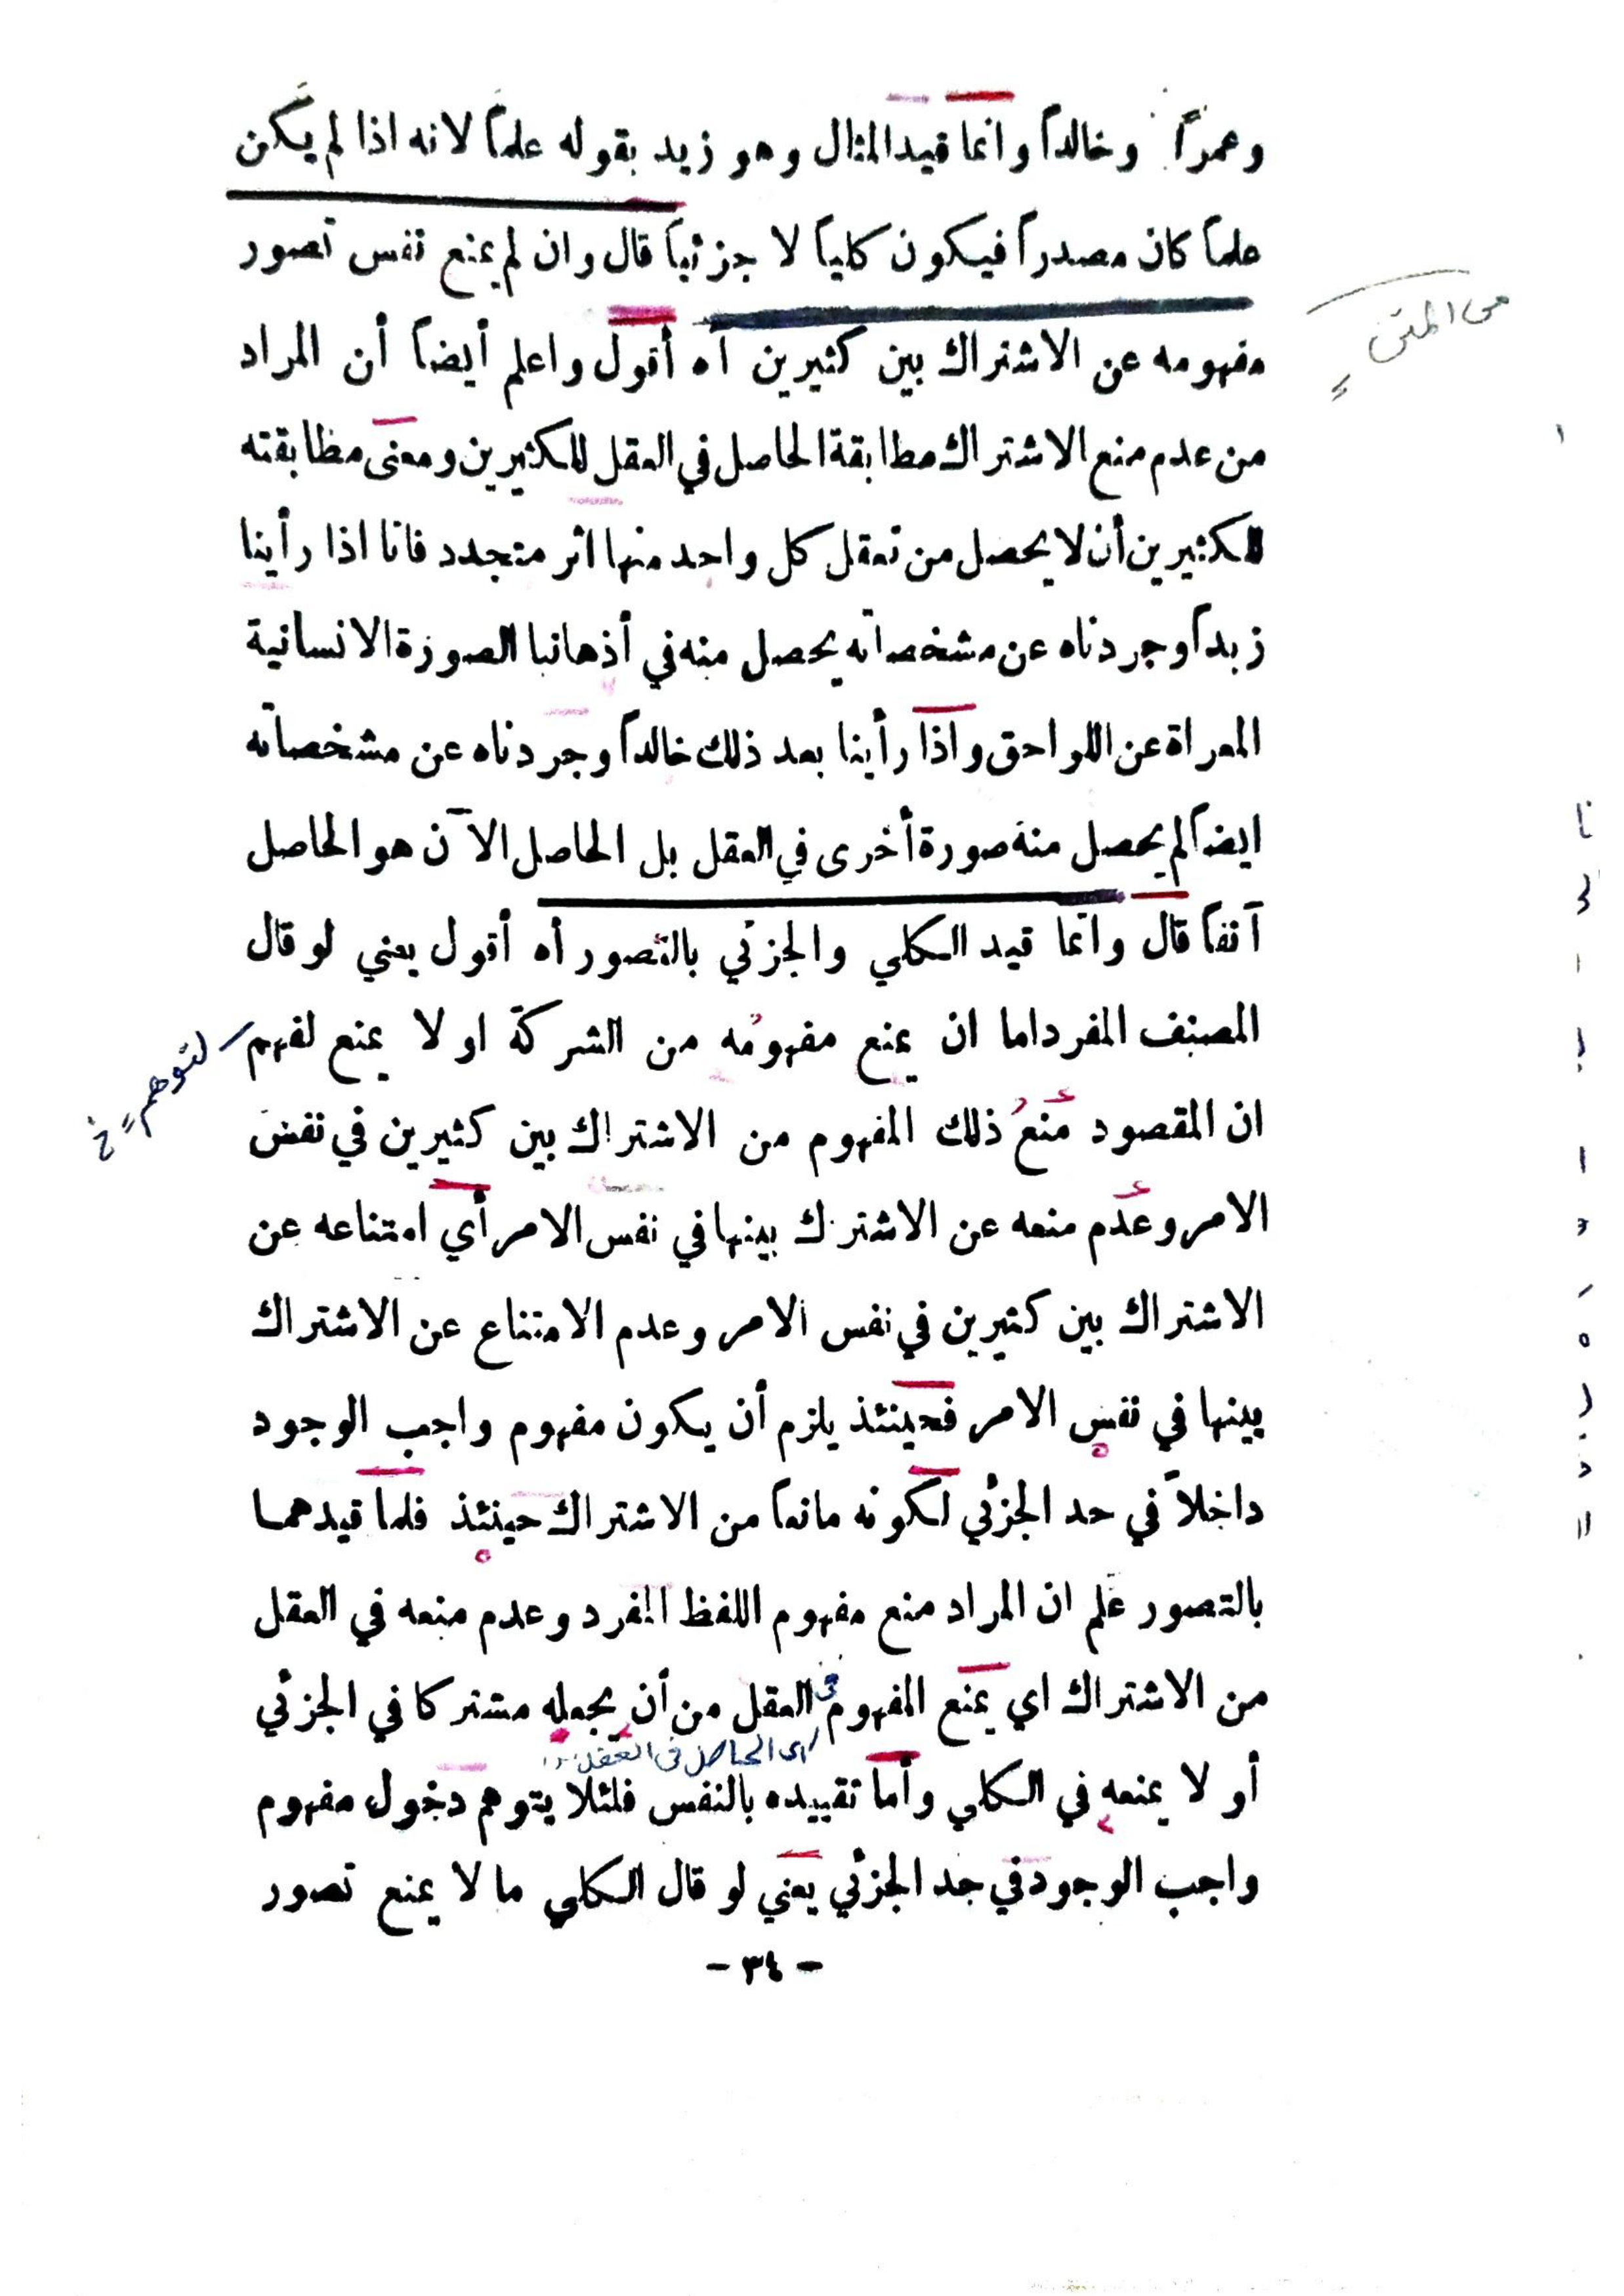 وعمراً وخالداً وانما قيد المثال وهو زيد بقوله علماً لانه اذا لم يكن
علماً كان مصدراً فيكون كلياً لا جزئياً قال وان لم يمنع نفس تصور
مفهومه عن الاشتراك بين كثيرين اه أقول واعلم أيضاً أن المراد
من المتن
من عدم منع الاشتراك مطابقة الحاصل في العقل للكثيرين ومعنى مطابقته
للكثيرين أن لا يحصل من تعقل كل واحد منها اثر متجدد فانا اذا رأينا
زيداً وجردناه عن مشخصاته يحصل منه في أذهاننا الصورة الانسانية
المعراة عن اللواحق واذا رأينا بعد ذلك خالداً وجردناه عن مشخصاته
ايضاً لم يحصل منه صورة أخرى في العقل بل الحاصل الآن هو الحاصل
آنفاً قال وانما قيد الكلي والجزئي بالتصور أه أقول يعني لو قال
المصنف المفرد اما ان يمنع مفهومُه من الشركة او لا يمنع لفهم
لتوهم خ
ان المقصود منعُ ذلك المفهوم من الاشتراك بين كثيرين في نفس
الامر وعدم منعه عن الاشترك بينها في نفس الامر أي امتناعه عن
الاشتراك بين كثيرين في نفس الامر وعدم الامتناع عن الاشتراك
بينها في نفس الامر فحينئذ يلزم أن يكون مفهوم واجب الوجود
داخلاً في حد الجزئي لكونه مانعاً من الاشتراك حينئذ فلما قيدهما
بالتصور علم ان المراد منع مفهوم اللفظ المفرد وعدم منعه في العقل
من الاشتراك اي يمنع المفهوم في العقل من أن يجعله مشتركا في الجزئي
اى الحاصل فى العقل
أو لا يمنعه في الكلي وأما تقييده بالنفس فلئلا يتوهم دخول مفهوم
واجب الوجود في حد الجزئي يعني لو قال الكلي ما لا يمنع تصور
- ٣٤ -